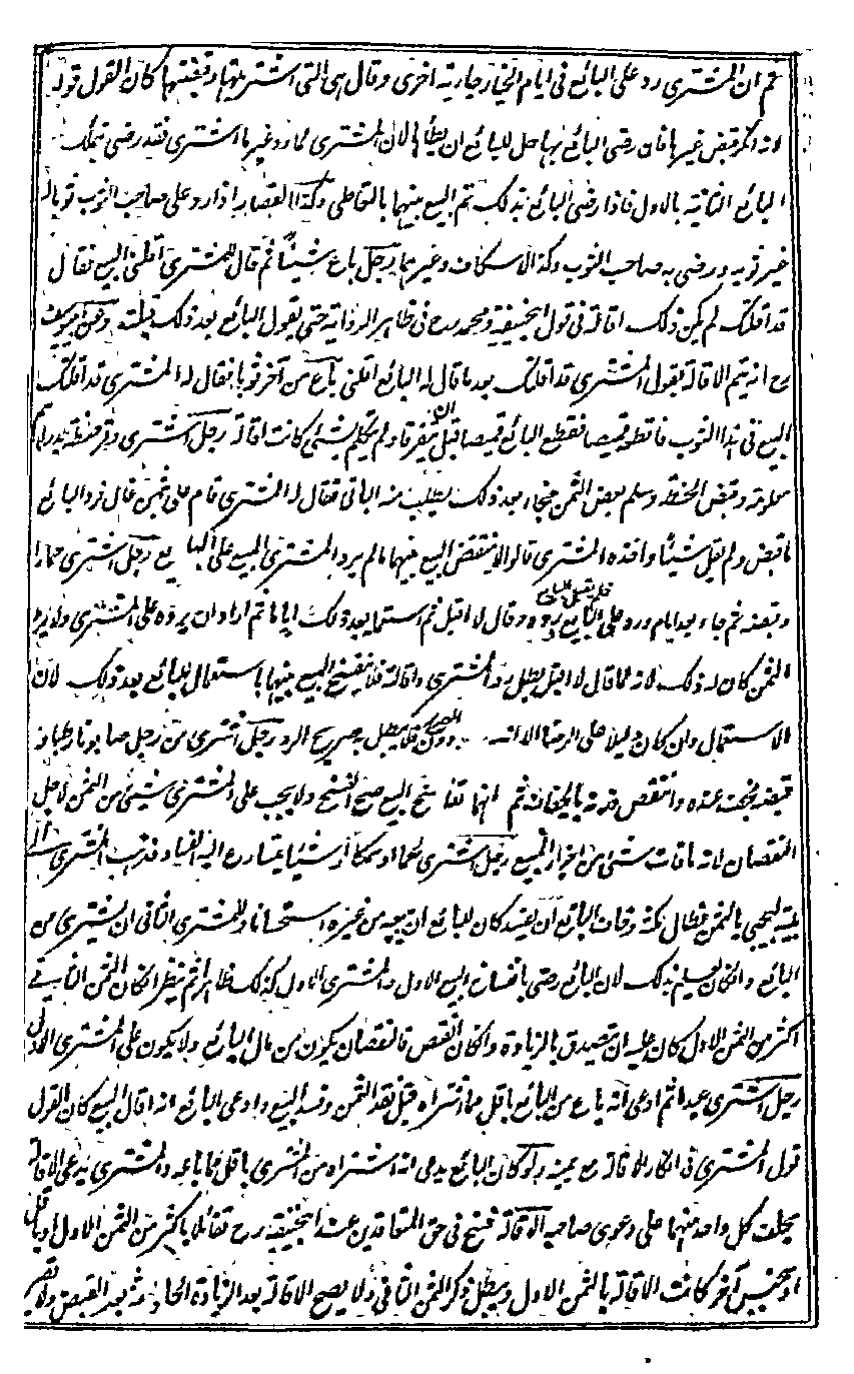 ثم ان المشترى رد على البائع فى ايام الخيار جارية اخرى وقال هى التى اشتريتها وقبضتها كان القول قوله
لانه انكر قبض غيرها فان رضى البائع بها حل للبائع ان يطأها لان المشترى لما رد غير ما اشترى فقد رضى بتملك
البائع الثانية بالاول فاذا رضى البائع بذلك تم البيع بينهما بالتعاطى وكذا القصار اذا رد على صاحب الثوب ثوبا
غير ثوبه ورضى به صاحب الثوب وكذا الاسكاف وغيرهما رجل باع شيئا ثم قال للمشترى اقلنى البيع فقال
قد اقلتك لم يكن ذلك اقالة فى قول ابيحنيفة ومحمد رح فى ظاهر الرواية حتى يقول البائع بعد ذلك قبلت وعن ابى يوسف
رح انه يتم الاقالة بقول المشترى قد اقلتك بعد ما قال له البائع اقلنى باع من آخر ثوبا فقال له المشترى قد اقلتك
البيع فى هذا الثوب فاقطعه قميصا فقطع البائع قميصا قبل ان يتفرقا ولم يتكلم بشئ كانت اقالة رجل اشترى وقر حنطة بدراهم
معلومة وقبض الحنطة وسلم بعض الثمن فجاء بعد ذلك يطلب منه الباقى فقال له المشترى قام على بثمن غال فرد البائع
ما قبض ولم يقل شيئا واخذه المشترى قالوا لا ينتقض البيع بينهما ما لم يرد المشترى المبيع على البايع رجل اشترى حمارا
وقبضه ثم جاء بعد ايام ورده على البائع فلم يقبل البائع وقال لا اقبل ثم استعمله بعد ذلك اياما ثم اراد ان يرده على المشترى ولا يرد
الثمن كان له ذلك لانه لما قال لا اقبل بطل رد المشترى واقالته فلا ينفسخ البيع بينهما باستعمال البائع بعد ذلك لان
الاستعمال وان كان دليلا على الرضا الا انه دون الصريح فلا يبطل به صريح الرد رجل اشترى من رجل صابونا رطبا و
قبضه فجفت عنده وانتقص وزنه بالجفاف ثم انهما تفاسخا البيع صح الفسخ ولا يجب على المشترى شئ من الثمن لاجل
النقصان لانه ما فات شئ من اجزاء المبيع رجل اشترى لحما او سمكا او شيئا يتسارع اليه الفساد فذهب المشترى الى
بيته ليجئ بالثمن فطال مكثه وخاف البائع ان يفسد كان للبائع ان يبيعه من غيره استحسانا وللمشترى الثانى ان يشترى من
البائع وان كان يعلم بذلك لان البائع رضى بانفساخ البيع الاول والمشترى الاول كذلك ظاهرا ثم ينظر ان كان الثمن الثانى
اكثر من الثمن الاول كان عليه ان يتصدق بالزيادة وان كان انقص فالنقصان يكون من مال البائع ولا يكون على المشترى الاول
رجل اشترى عبدا ثم ادعى انه باع من البائع باقل مما اشتراه قبل نقد الثمن وفسد البيع وادعى البائع انه اقال البيع كان القول
قول المشترى فى انكار الاقالة مع يمينه ولو كان البائع يدعى انه اشتراه من المشترى باقل مما باعه والمشترى يدعى الاقالة
يحلف كل واحد منهما على دعوى صاحبه الاقالة فسخ فى حق المتعاقدين عند ابيحنيفة رح تقائلا باكثر من الثمن الاول او باقل
او بجنس آخر كانت الاقالة بالثمن الاول ويبطل ذكر الثمن الثانى ولا يصح الاقالة بعد الزيادة الحادثة بعد القبض ولا